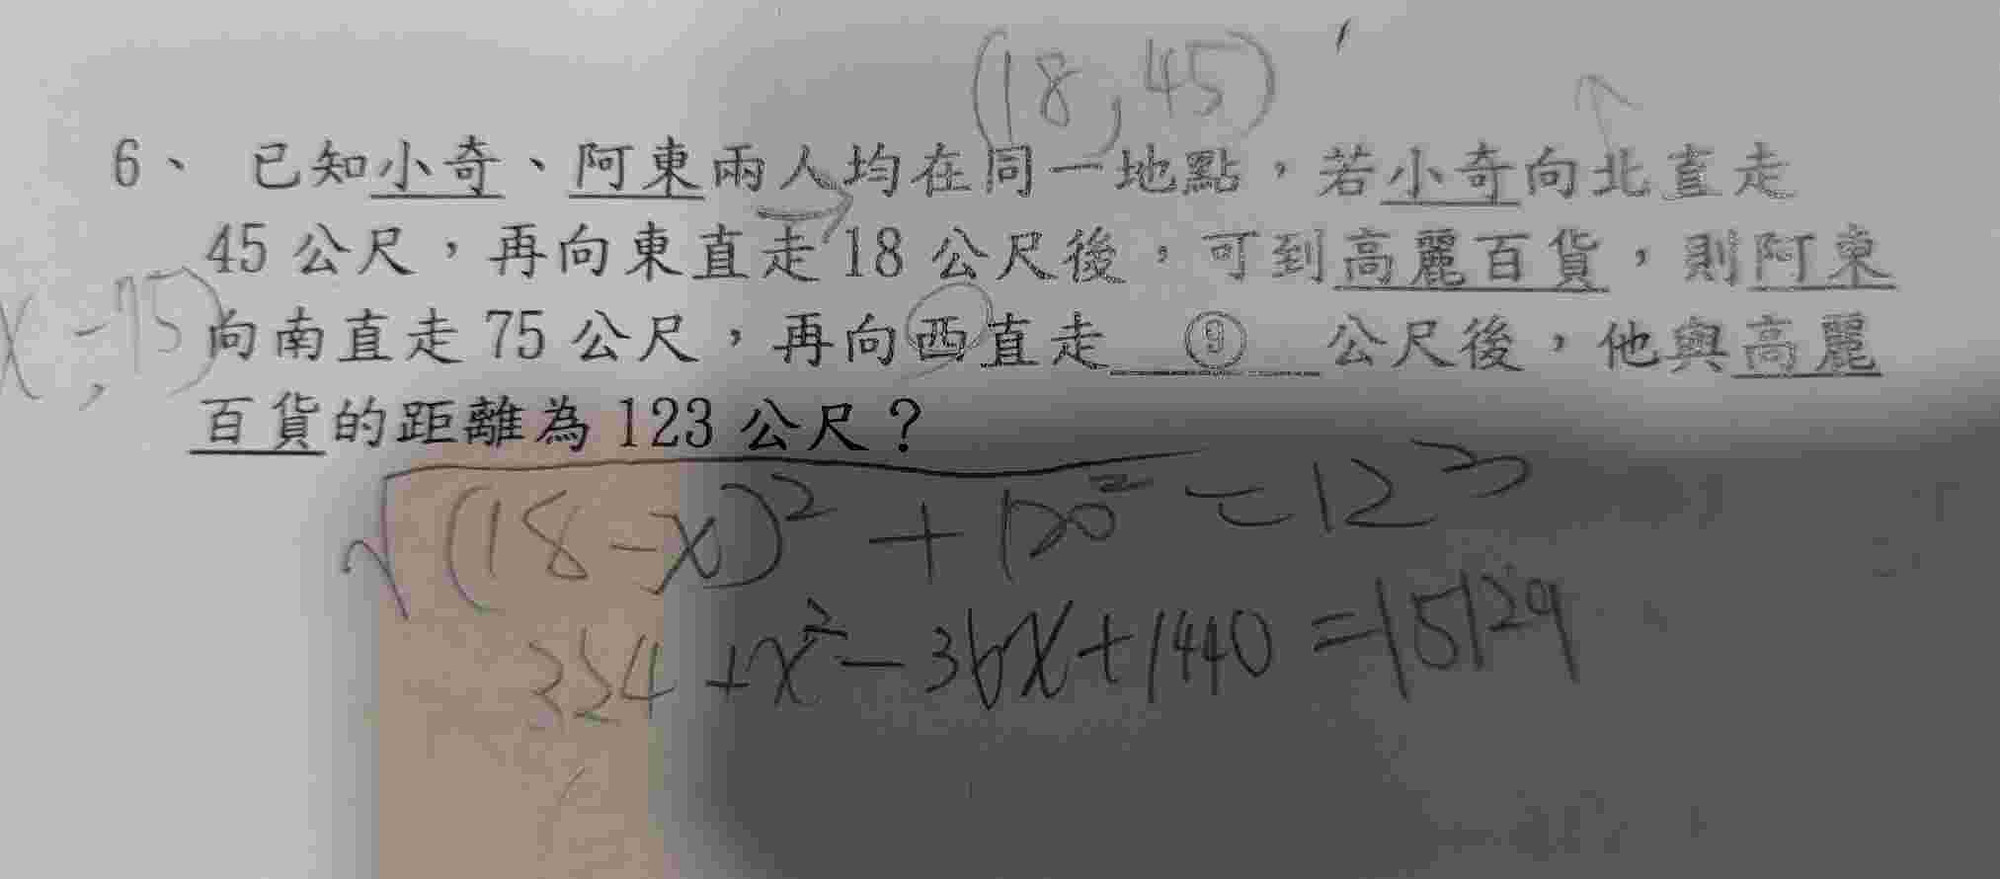 (18, 45)
6、 已知小奇、阿東兩人均在同一地點，若小奇向北直走
45 公尺，再向東直走 18 公尺後，可到高麗百貨，則阿東
x, -75)
向南直走 75 公尺，再向西直走 ⑨ 公尺後，他與高麗
百貨的距離為 123 公尺？
√(18-x)²+120² = 123
324+x²-36x+1440=15129